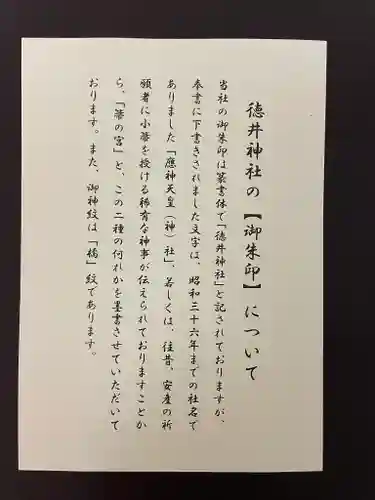 徳井神社の【御朱印】について
当社の御朱印は篆書体で「徳井神社」と記されておりますが、
奉書に下書きされました文字は、昭和三十六年までの社名で
ありました「應神天皇（神）社」、若しくは、往昔、安産の祈
願者に小箒を授ける稀有な神事が伝えられておりますことか
ら、「箒の宮」と、この二種の何れかを墨書させていただいて
おります。また、御神紋は「橘」紋であります。